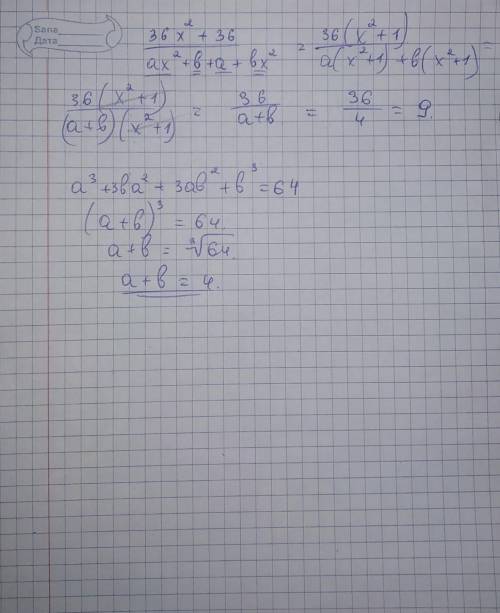 Sana
Дата
36x² + 36 / ax² + b + a + bx² = 36(x² + 1) / a(x² + 1) + b(x² + 1) =
36(x² + 1) / (a + b)(x² + 1) = 36 / a + b = 36 / 4 = 9.
a³ + 3ba² + 3ab² + b³ = 64
(a + b)³ = 64.
a + b = ³√64.
a + b = 4.